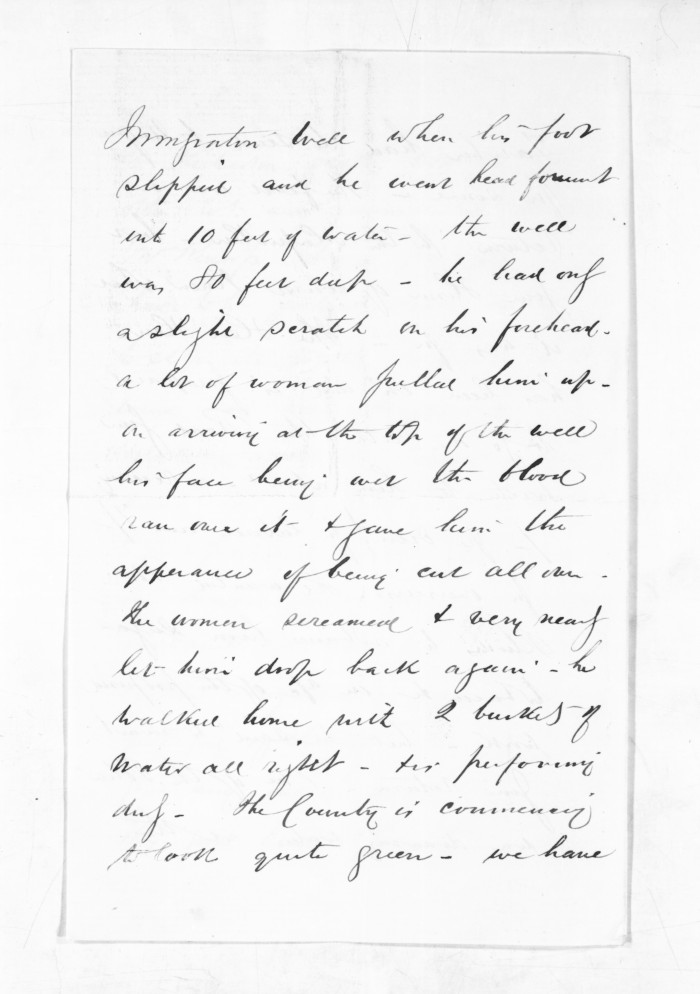 Immigration Well when his foot
slipped and he went head foremost
into 10 feet of water - the well
was 80 feet deep - he had only
a slight scratch on his forehead -
a lot of woman pulled him up -
on arriving at the top of the well
his face being wet the blood
ran over it & gave him the
apperance of being cut all over -
the women screamed & very nearly
let him drop back again - he
walked home with 2 buckets of
water all right - & is performing
duty - The Country is commencing
to look quite green - we have